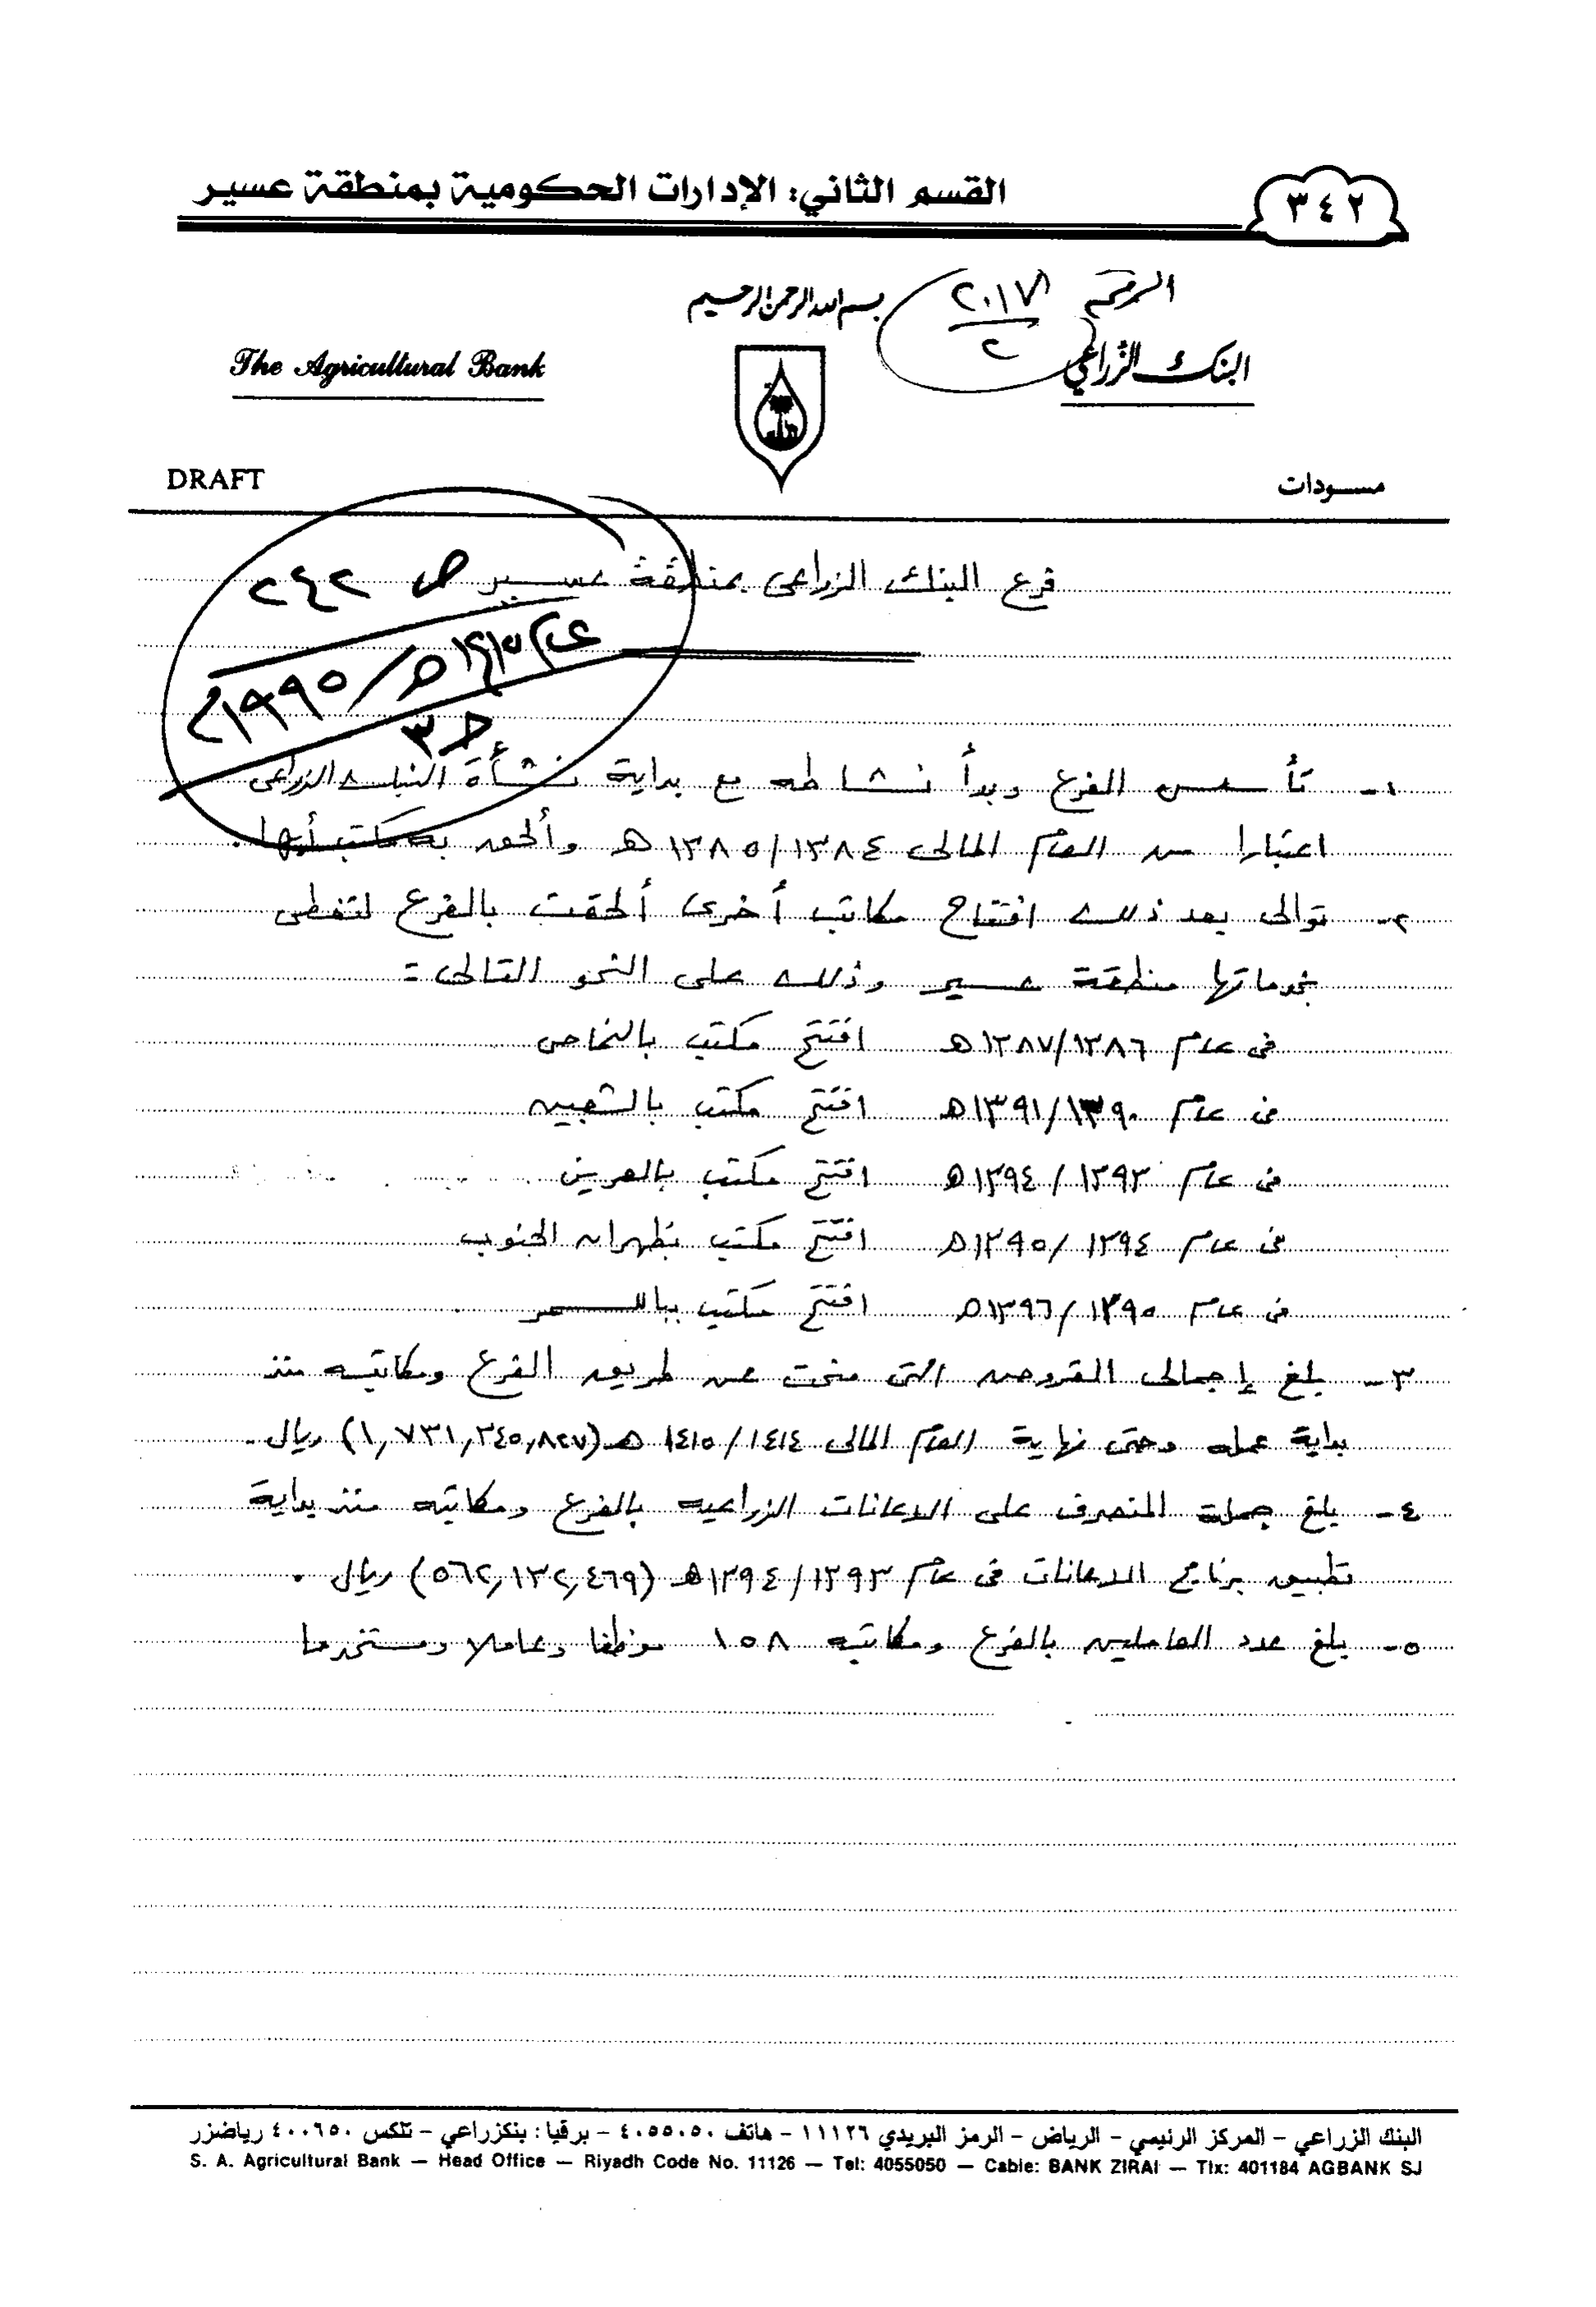 القسم الثاني: الإدارات الحكومية بمنطقة عسير
٣٤٢
الرقم ٢٠١٧
٢
بسم الله الرحمن الرحيم
The Agricultural Bank
البنك الزراعي
DRAFT
مسودات
فرع البنك الزراعى بمنطقة عسير
ص ٢٤٢
عام ١٤١٥هـ/١٩٩٥م
حـ٣
١- تأسس الفرع وبدأ نشاطه مع بداية نشأة البنك الزراعى
اعتبارا من العام المالى ١٣٨٥/١٣٨٤هـ وألحق به مكتب أبها.
٢- توالى بعد ذلك افتتاح مكاتب أخرى ألحقت بالفرع لتغطى
بخدماتها منطقة عسير وذلك على النحو التالى :-
فى عام ١٣٨٧/١٣٨٦هـ افتتح مكتب بالنماص
فى عام ١٣٩١/١٣٩٠هـ افتتح مكتب بالشعبين
فى عام ١٣٩٤/١٣٩٣هـ افتتح مكتب بالعرين
فى عام ١٣٩٥/١٣٩٤هـ افتتح مكتب بظهران الجنوب
فى عام ١٣٩٦/١٣٩٥هـ افتتح مكتب ببللسمر
٣- بلغ إجمالى القروض التى منحت عن طريق الفرع ومكاتبه منذ
بداية عمله وحتى نهاية العام المالى ١٤١٥/١٤١٤هـ (١,٧٣١,٣٤٥,٨٢٧) ريال.
٤- بلغ جملة المنصرف على الاعانات الزراعيه بالفرع ومكاتبه منذ بداية
تطبيق برنامج الاعانات فى عام ١٣٩٤/١٣٩٣هـ (٥٦٢,١٣٢,٤٦٩) ريال .
٥- بلغ عدد العاملين بالفرع ومكاتبه ١٥٨ موظفا وعاملا ومستخدما
البنك الزراعي – المركز الرئيسي – الرياض – الرمز البريدي ١١١٢٦ – هاتف ٤٠٥٥٠٥٠ – برقيا : بنكزراعي – تلكس ٤٠٠٦٥٠ رياضزر
S. A. Agricultural Bank — Head Office — Riyadh Code No. 11126 — Tel: 4055050 — Cable: BANK ZIRAI — Tlx: 401184 AGBANK SJ